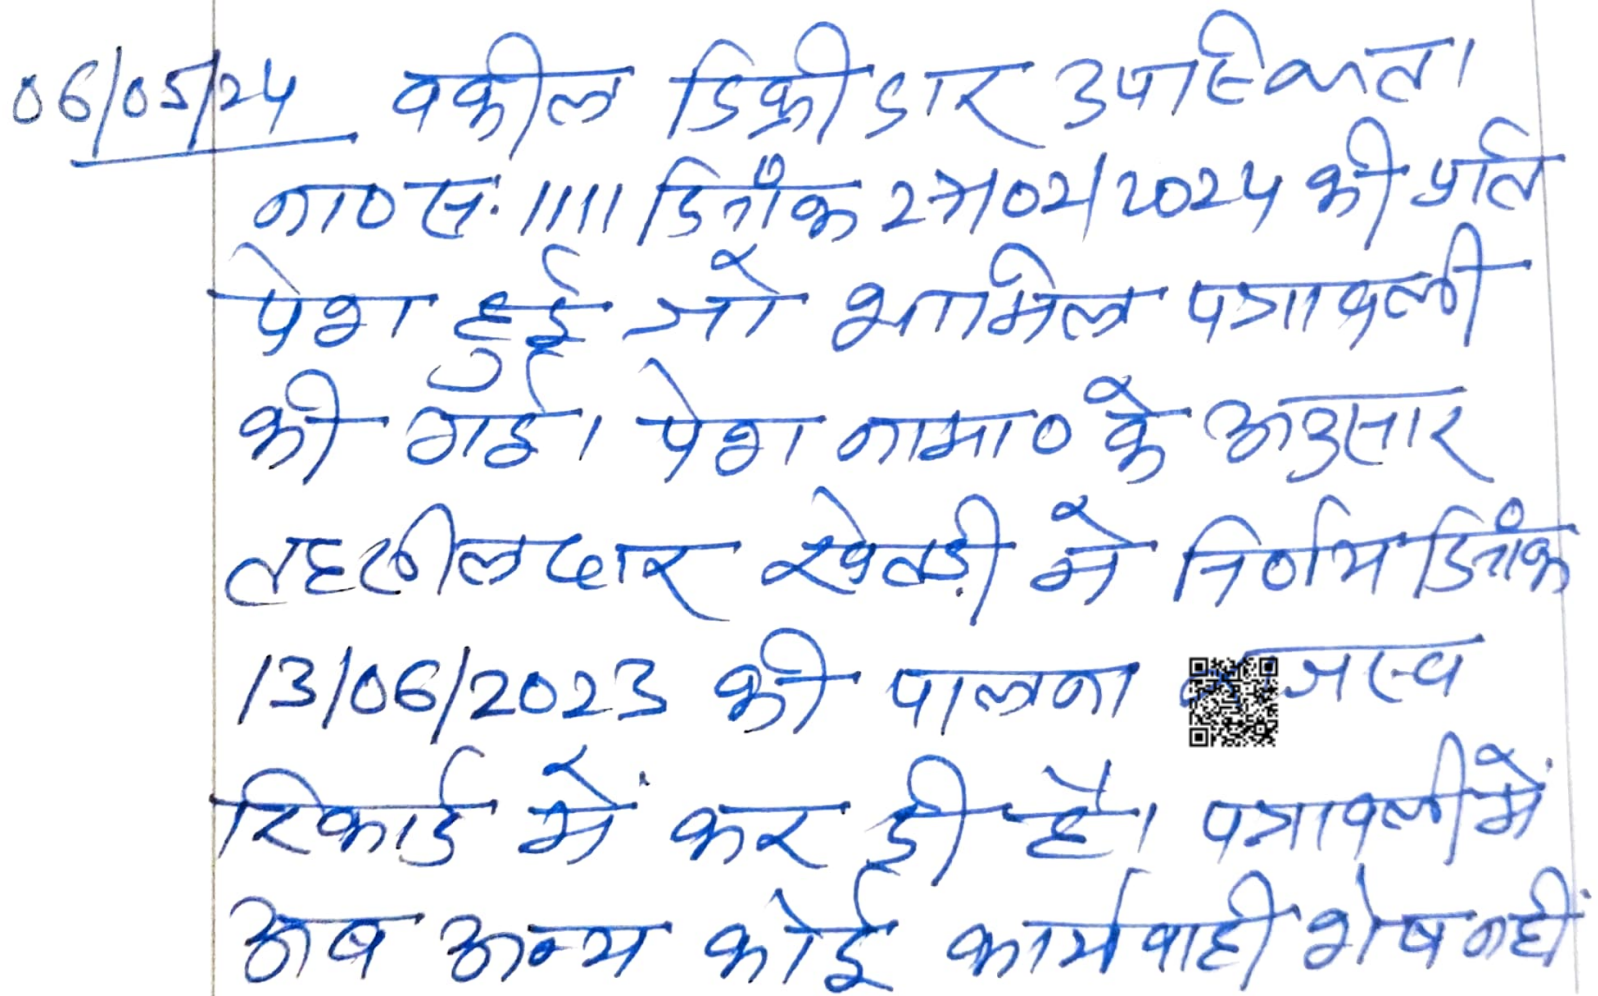 06/05/24 वकील डिक्रीदार उपस्थित।
ना०सं. 1111 दिनांक 27/02/2024 की प्रति
पेश हुई जो शामिल पत्रावली
की गई। पेश नामा० के अनुसार
तहसीलदार खेतड़ी ने निर्णय दिनांक
13/06/2023 की पालना राजस्व
रिकार्ड में कर दी है। पत्रावली में
अब अन्य कोई कार्यवाही शेष नहीं